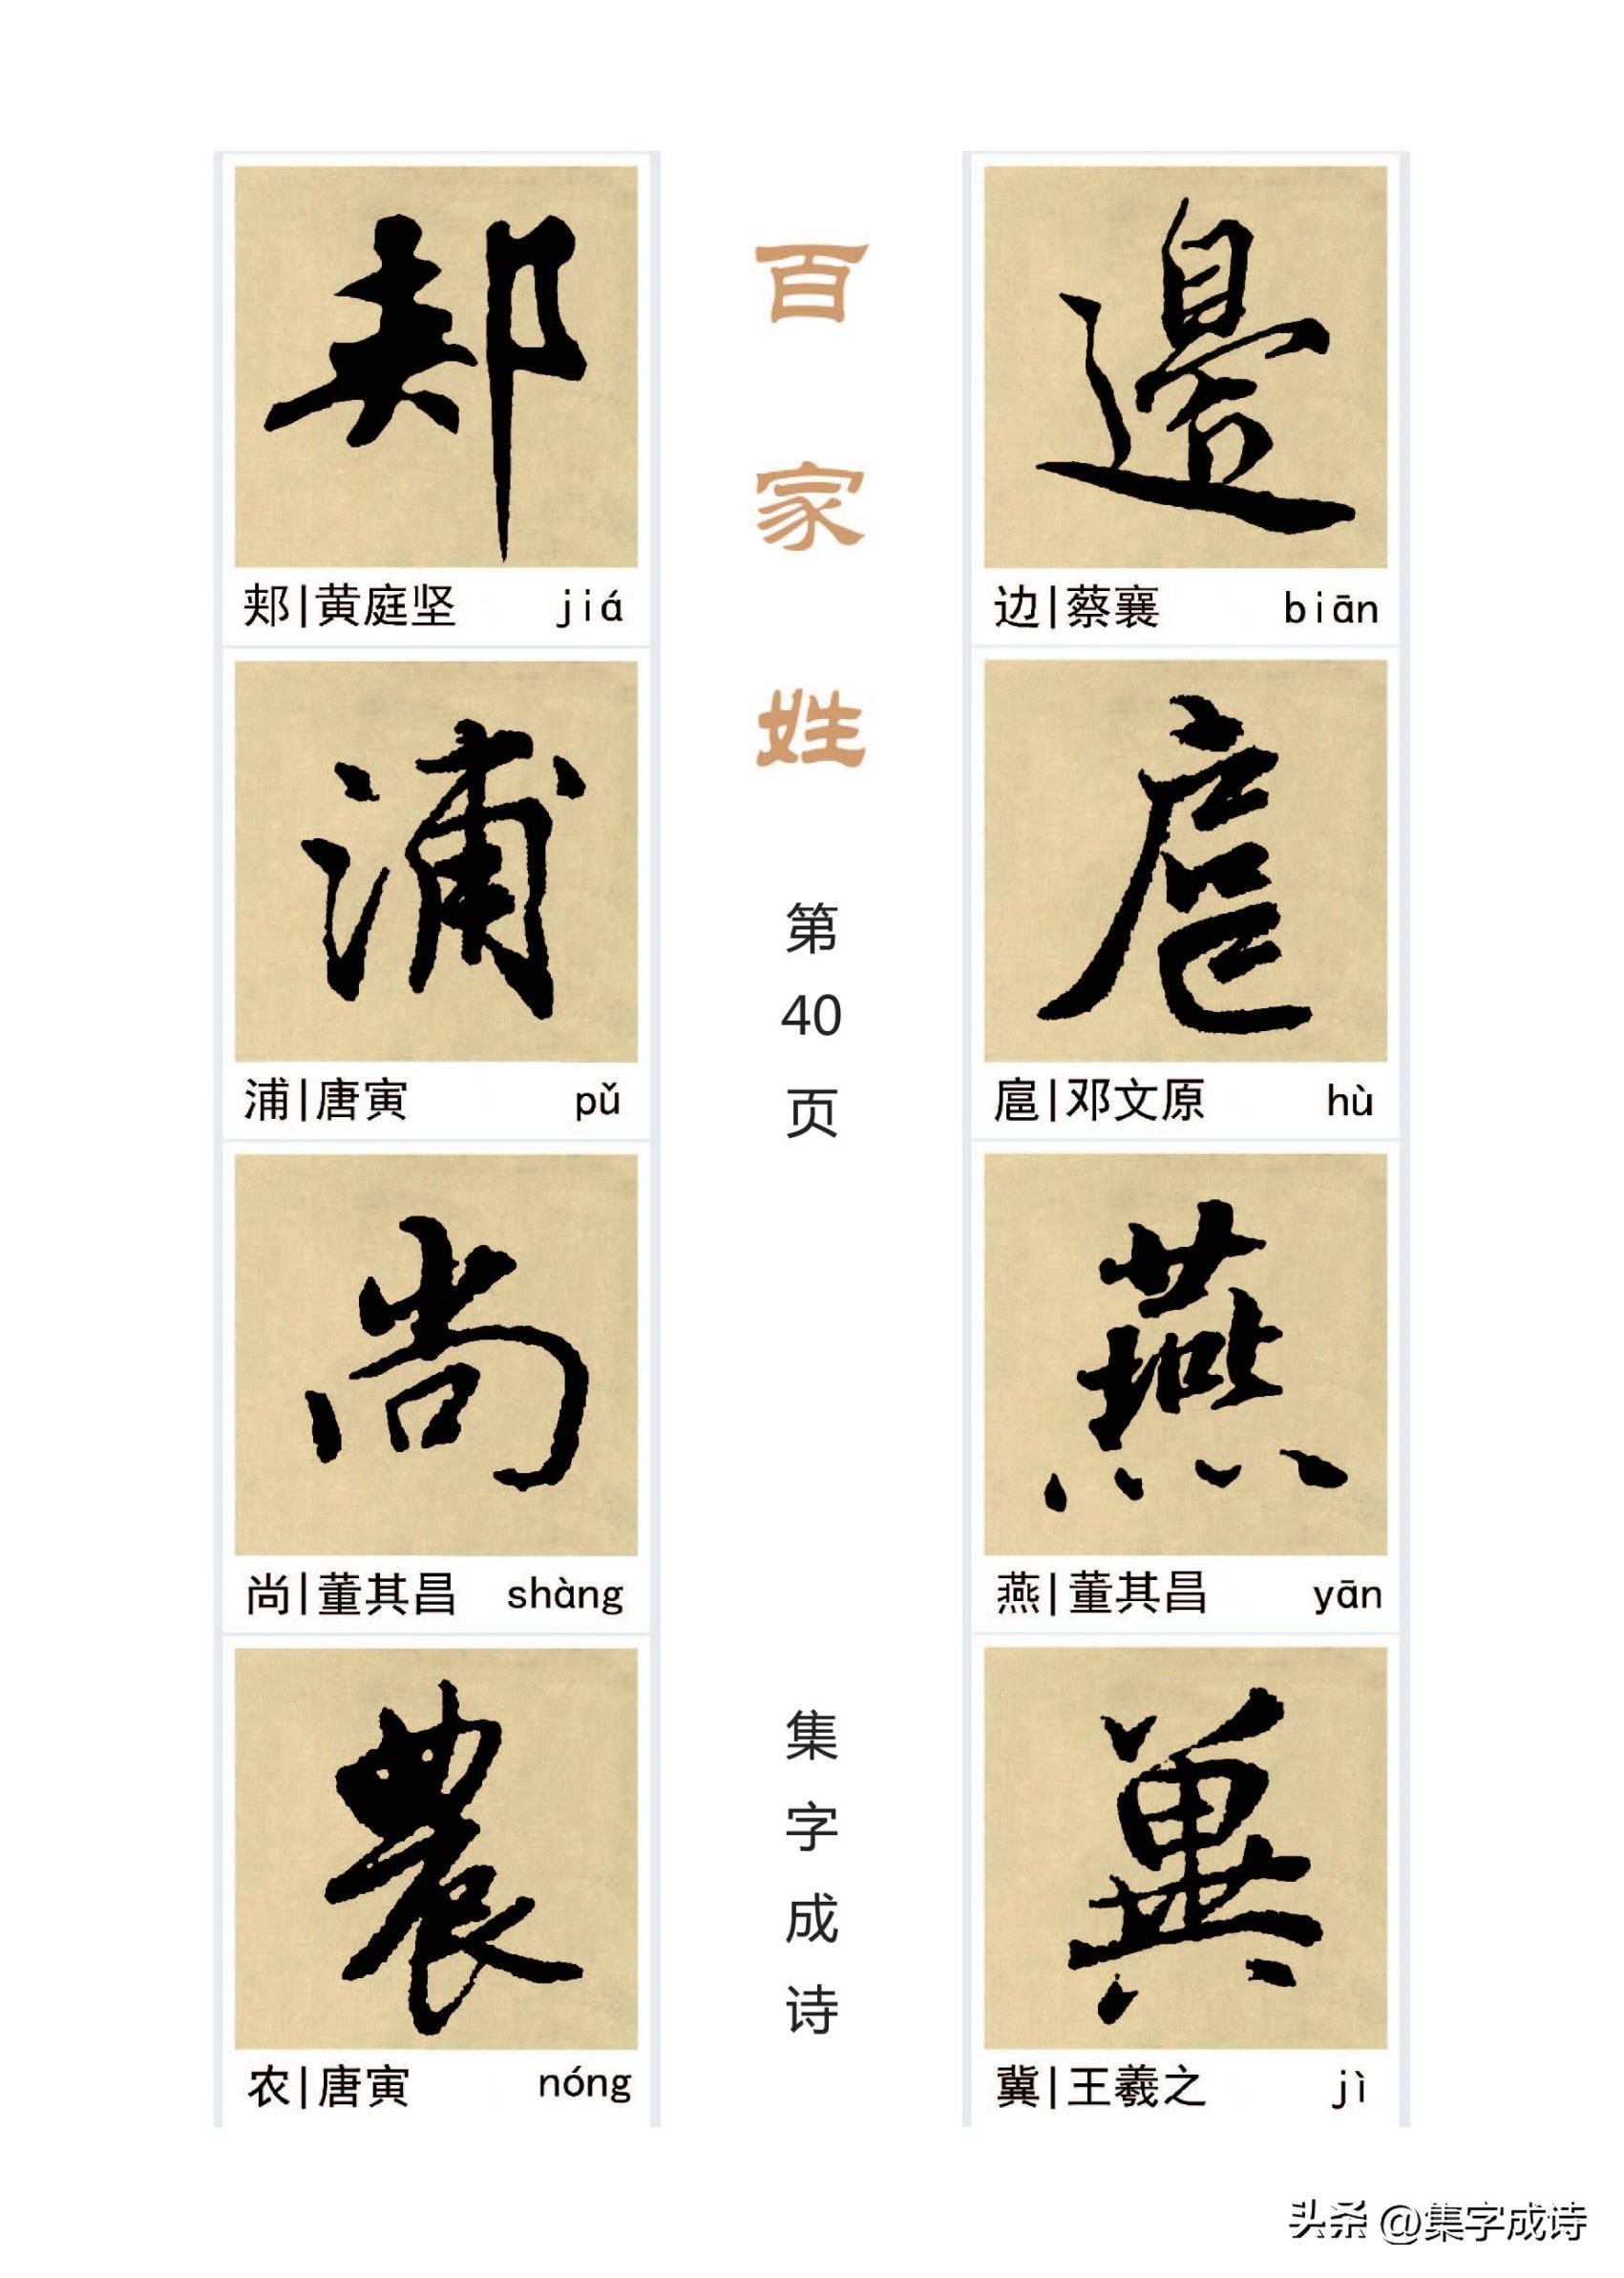 郏
郏|黄庭坚 jiá
浦
浦|唐寅 pǔ
尚
尚|董其昌 shàng
農
农|唐寅 nóng
百家姓
第40页
集字成诗
邊
边|蔡襄 biān
扈
扈|邓文原 hù
燕
燕|董其昌 yān
冀
冀|王羲之 jì
头条 @集字成诗